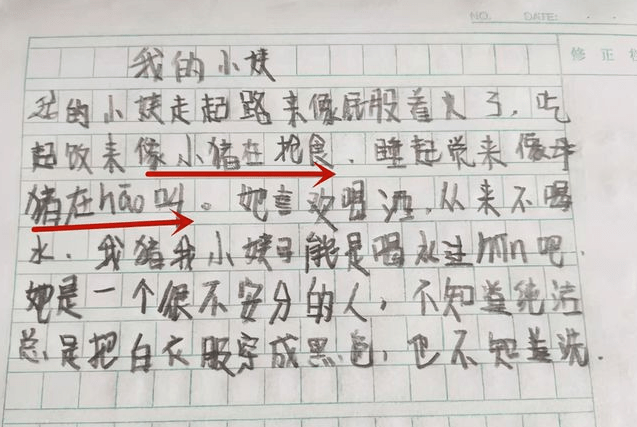 NO.  DATE:
修正栏
我的小姨
我的小姨走起路来像屁股着火了，吃
起饭来像小猪在抢食，睡起觉来像
猪在hāo叫。她喜欢喝酒，从来不喝
水，我猪我小姨可能是喝水过mǐn吧，
她是一个很不安分的人，不知道纯洁
总是把白衣服穿成黑色，也不知道洗，